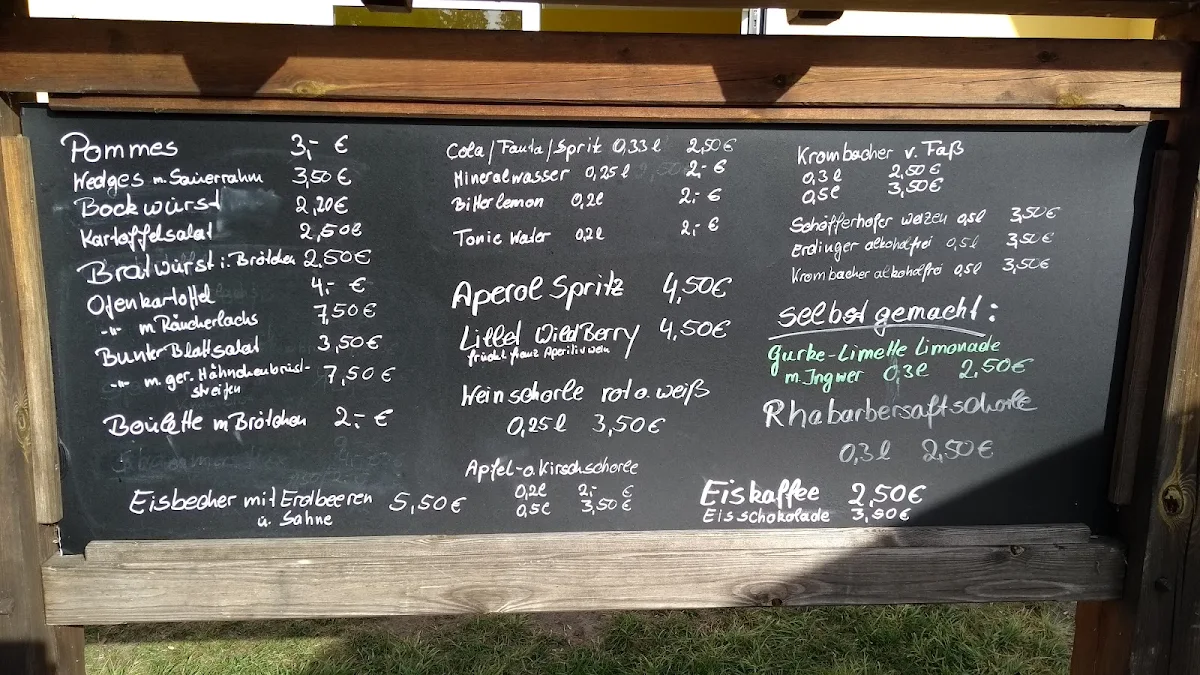 Pommes 3,- €
Wedges m. Sauerrahm 3,50 €
Bockwurst 2,20 €
Kartoffelsalat 2,50 €
Bratwurst i. Brötchen 2,50 €
Ofenkartoffel 4,- €
-"- m Räucherlachs 7,50 €
Bunter Blattsalat 3,50 €
-"- m. ger. Hähnchenbrust-
streifen 7,50 €
Boulette m Brötchen 2,- €
Eisbecher mit Erdbeeren 5,50 €
u. Sahne
Cola/Fanta/Sprit 0,33 l 2,50 €
Mineralwasser 0,25 l 2,- €
Bitterlemon 0,2 l 2,- €
Tonic Water 0,2 l 2,- €
Aperol Spritz 4,50 €
Lillet WildBerry 4,50 €
frücht franz Aperitivwein
Weinschorle rot o. weiß
0,25 l 3,50 €
Apfel- o. Kirschschorle
0,2 l 2,- €
0,5 l 3,50 €
Krombacher v. Faß
0,3 l 2,50 €
0,5 l 3,50 €
Schöfferhofer weizen 0,5 l 3,50 €
Erdinger alkoholfrei 0,5 l 3,50 €
Krombacher alkoholfrei 0,5 l 3,50 €
selbst gemacht:
Gurke-Limette Limonade
m. Ingwer 0,3 l 2,50 €
Rhabarbersaftschorle
0,3 l 2,50 €
Eiskaffee 2,50 €
Eisschokolade 3,50 €